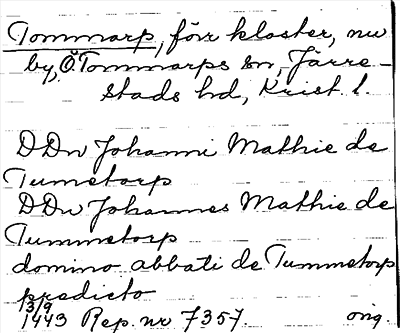 Tommarp, förr kloster, nu
by, Ö Tommarps sn, Järre-
stads hd, Krist. l.
DDn Johanni Mathie de
Tumetorp
DDn Johannes Mathie de
Tummetorp
domino abbati de Tummetorp
predicto
3/9
1443 Rep. nr 7357. orig.